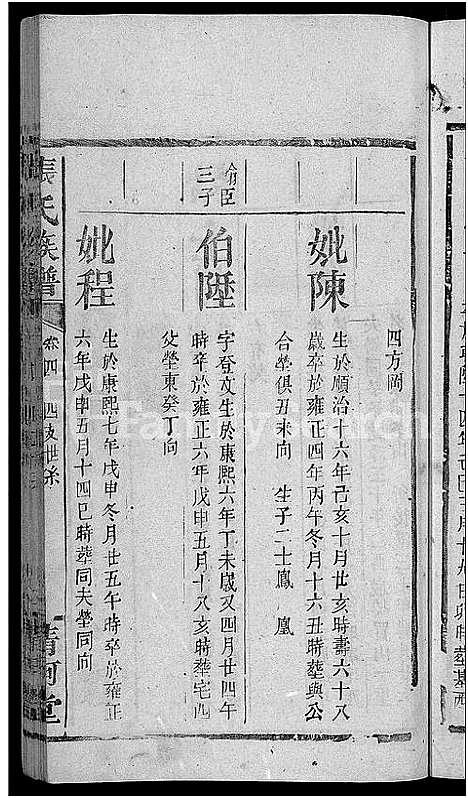 四方岡
妣陳
生於順治十六年己亥十月廿亥時壽六十八
歲卒於雍正四年丙午冬月十六丑時塟與公
合塋俱丑未向 生子二士鳳 凰
臣
三子
伯陞
字登文生於康熙六年丁未歲又四月廿四午
時卒於雍正六年戊申五月十八亥時塟宅西
父塋東癸丁向
妣程
生於康熙七年戊申冬月廿五午時卒於雍正
六年戊申五月十四巳時塟同夫塋同向
張氏族譜
卷四 四支世系
清河堂
FamilySearch